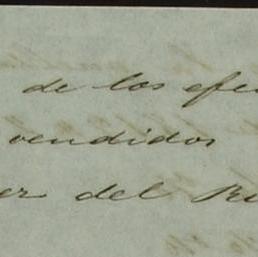 de los efe
vendidos
er del Ru